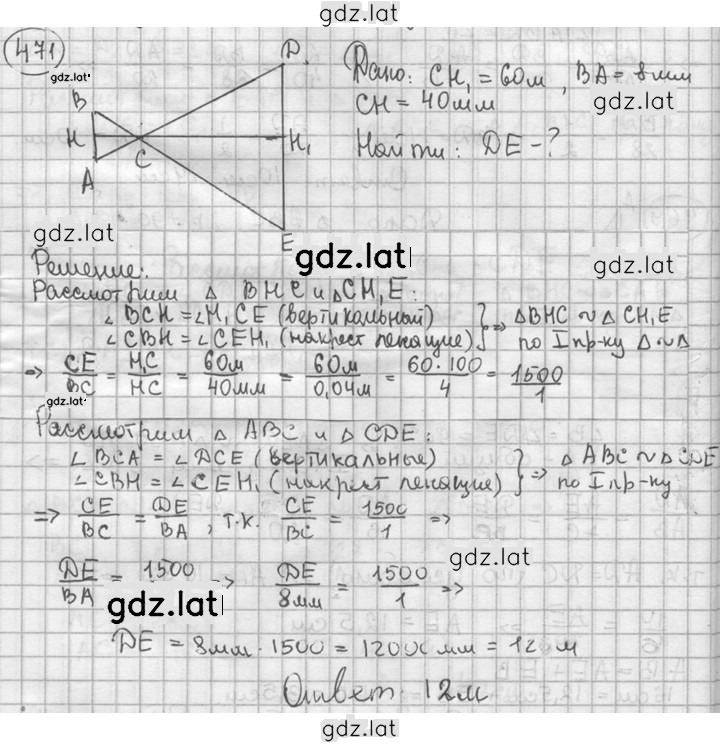 gdz.lat
471
gdz.lat
Дано: CH₁ = 60м, BA = 8мм
gdz.lat
CH = 40мм
Найти: DE - ?
D
B
H
A
C
H₁
E
gdz.lat
gdz.lat
gdz.lat
Решение:
Рассмотрим △ BHC и △CH₁E:
∠ BCH = ∠H₁CE (вертикальный)
∠ CBH = ∠CEH₁ (накрест лежащие) } => △BHC ~ △ CH₁E по I пр-ку △ ~ △
=> CE/BC = H₁C/HC = 60м/40мм = 60м/0,04м = 60·100/4 = 1500/1
gdz.lat
Рассмотрим △ ABC и △ CDE:
∠ BCA = ∠ DCE (вертикальные)
∠ CBH = ∠ CEH₁ (накрест лежащие) } => △ ABC ~ △ CDE по I пр-ку
=> CE/BC = DE/BA, т.к. CE/BC = 1500/1 =>
gdz.lat
DE/BA = 1500 => DE/8мм = 1500/1 =>
gdz.lat
DE = 8мм · 1500 = 12000 мм = 12 м
Ответ 12м
gdz.lat